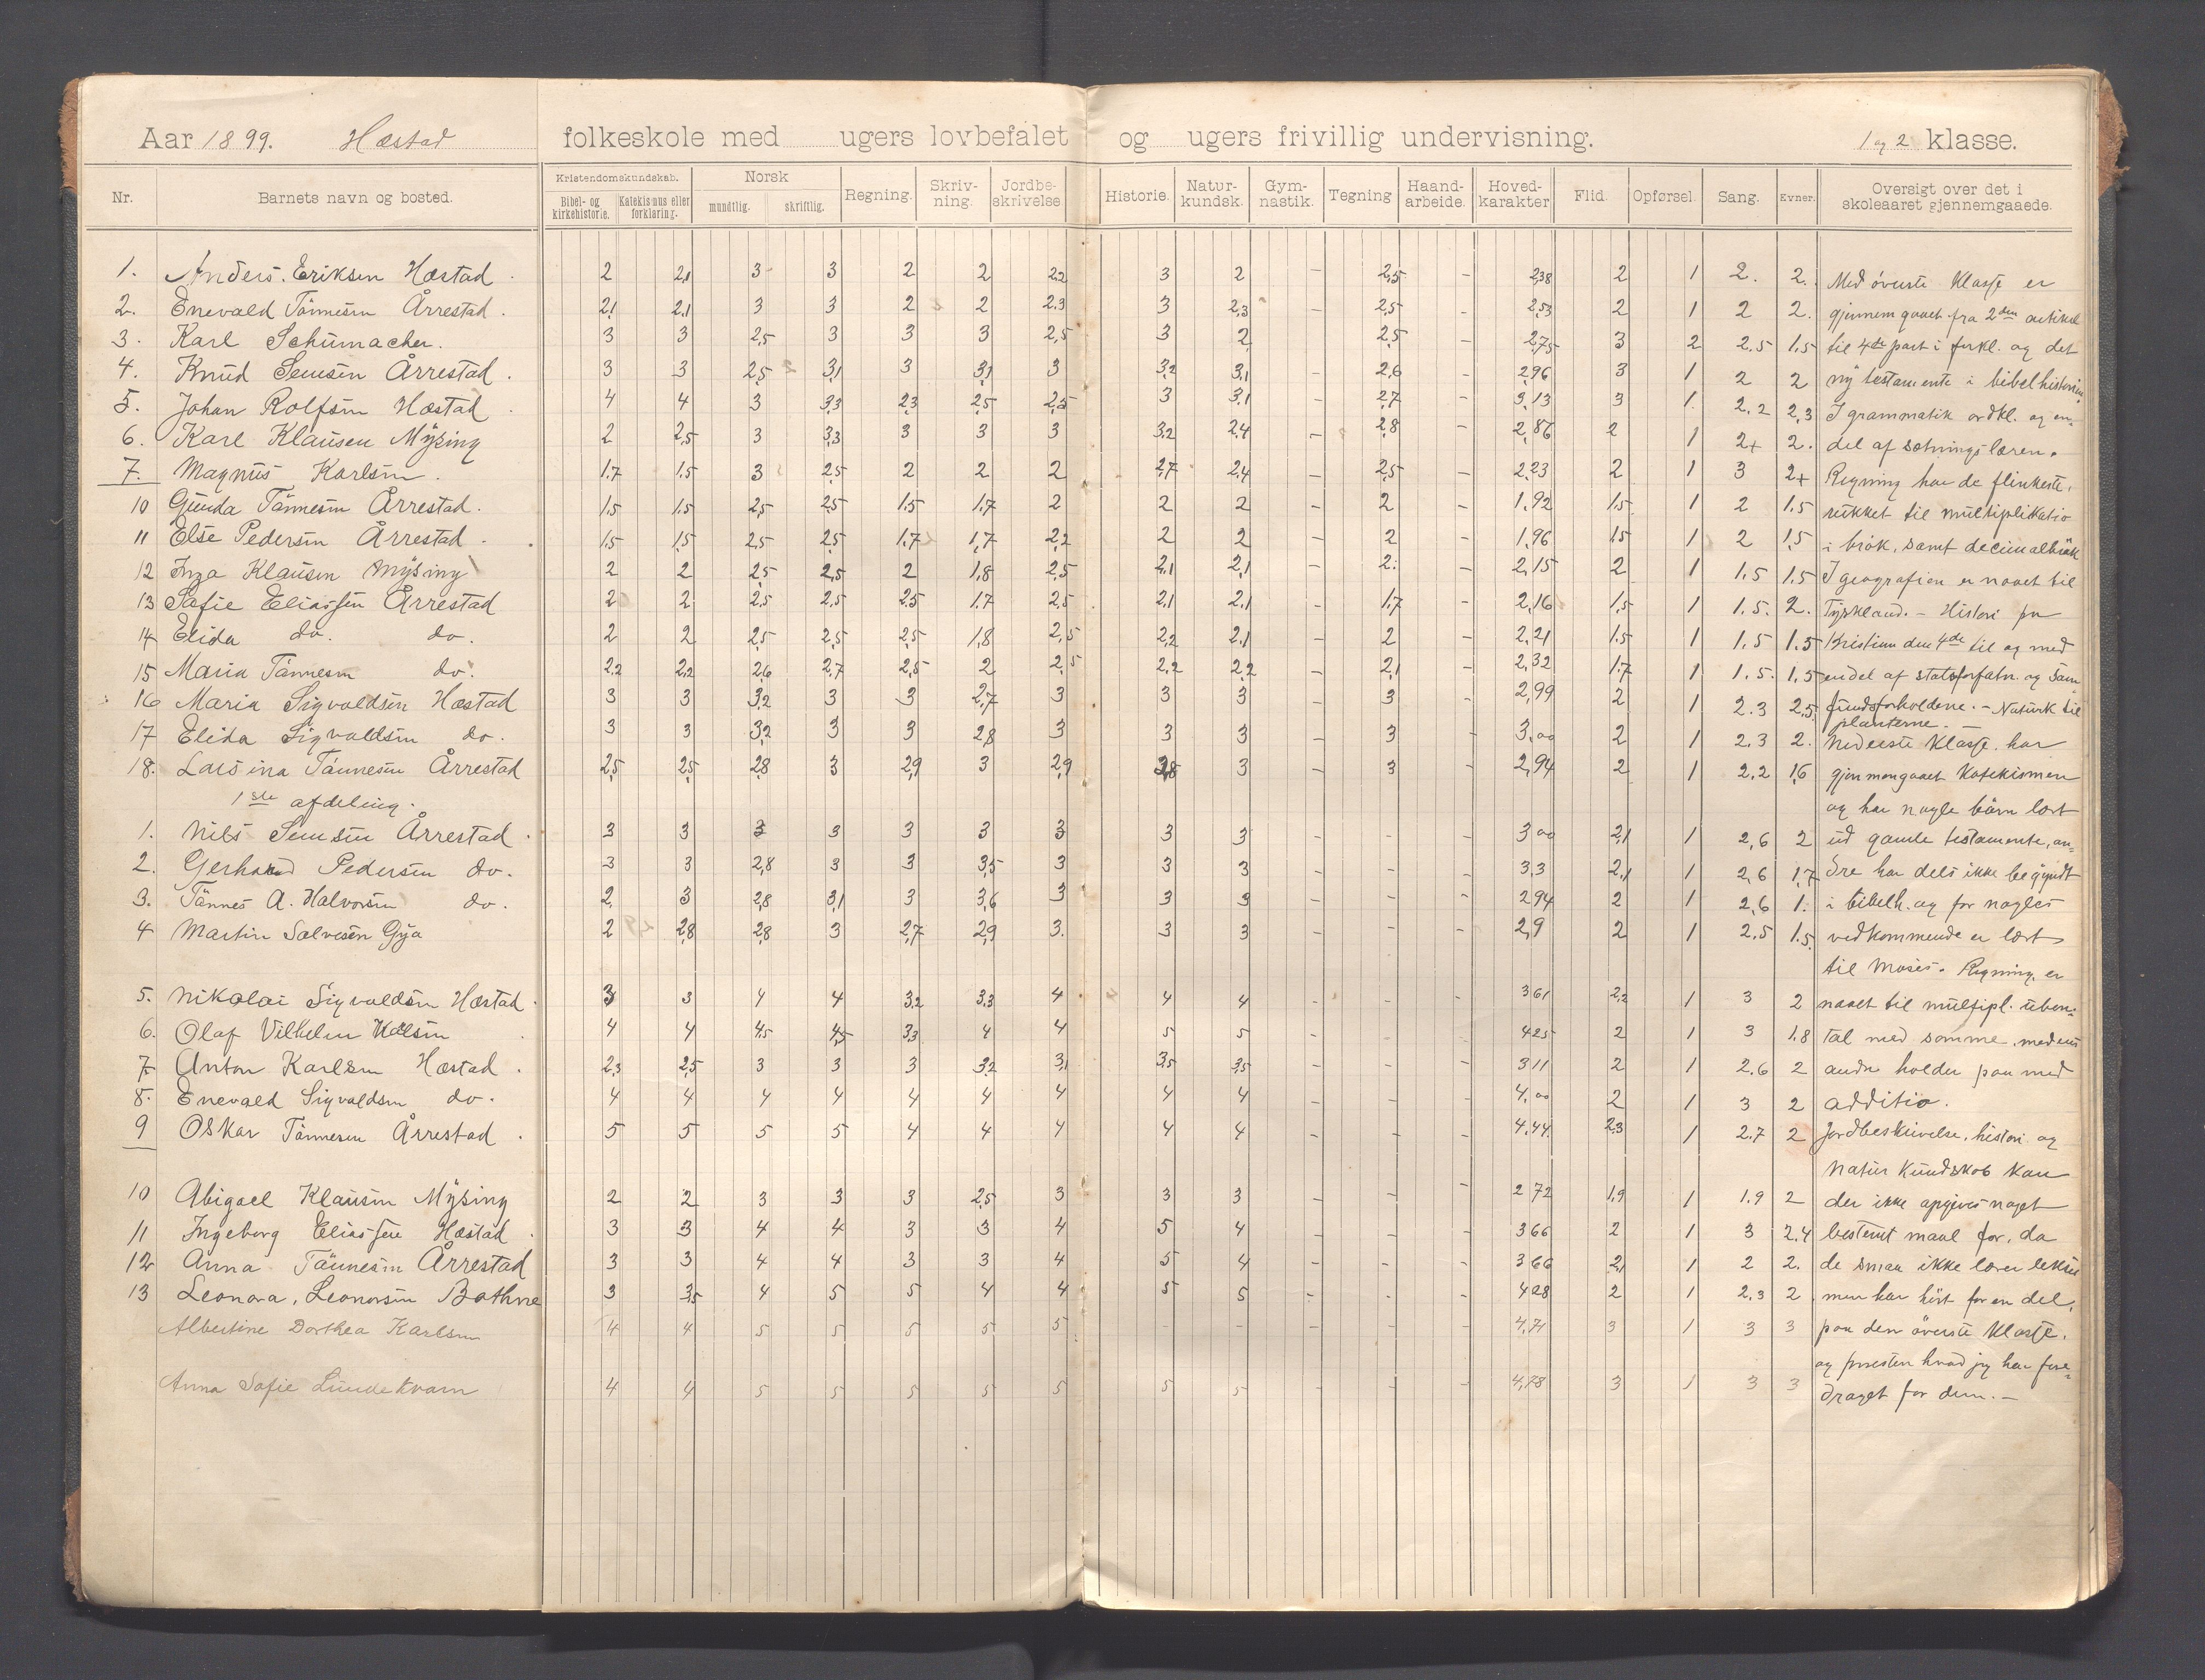 Aar 1899. Hæstad folkeskole med ugers lovbefalet og ugers frivillig undervisning. 1 og 2 klasse.
Nr. Barnets navn og bosted. Kristendomskundskab. Bibel- og kirkehistorie. Katekismus eller forklaring. Norsk mundtlig. skriftlig. Regning. Skriv-ning. Jordbe-skrivelse. Historie. Natur-kundsk. Gym-nastik. Tegning Haand-arbeide. Hoved-karakter Flid. Opførsel. Sang. Evner. Oversigt over det i skoleaaret gjennemgaaede.
1. Anders Eriksen Hæstad 2 2,1 3 3 2 2 2,2 3 2 – 2,5 – 2,38 2 1 2. 2. Med øverste klasse er
2. Enevald Tønnesen Årrestad. 2,1 2,1 3 3 2 2 2.3 3 2,3 – 2,5 – 2,53 2 1 2 2. gjennemgaaet fra 2den artikel
3. Karl Schumacher. 3 3 2,5 3 3 3 2,5 3 2 – 2,5 – 2,75 3 2 2.5 1.5 til 4de part i forkl. og det
4. Knud Semsen Årrestad. 3 3 2,5 3,1 3 3,1 3 3,2 3,1 – 2,6 – 2,96 3 1 2 2 ny testamente i bibelhistorien
5. Johan Rolfsen Hæstad 4 4 3 3,3 2,3 2,5 2,5 3 3.1 – 2,7 – 3,13 3 1. 2.2 2,3 I grammatik ordkl. og en-
6. Karl Klausen Mysing 2 2,5 3 3,3 3 3 3 3,2 2,4 – 2,8 – 2,86 2 1 2+ 2. del af sætningslæren.
7. Magnus Karlsen. 1.7 1.5 3 2,5 2 2 2 2,7 2,4 – 2,5 – 2,23 2 1 3 2+ Regning har de flinkeste,
10 Gunda Tønnesen Årrestad. 1.5 1.5 2,5 2,5 1.5 1.7 2 2 2 – 2 – 1.92 1.5 1 2 1.5 rukket til multiplikatio
11 Else Pedersen Årrestad. 1.5 1.5 2,5 2,5 1.7 1,7 2,2 2 2 – 2 – 1,96 1.5 1 2 1,5 i brøk, samt decimalbrøk
12 Inga Klausen Mysing 2 2 2,5 2,5 2 1,8 2,5 2,1 2,1 – 2. – 2,15 2 1 1.5 1.5 I geografien er naaet til
13 Sofie Eliassen Årrestad 2 2 2,5 2,5 2,5 1.7 2,5 2,1 2.1 – 1.7 – 2,16 1.5 1 1.5. 2. Tyskland. – Histori fra
14 Elida do. do. 2 2 2,5 2,5 2,5 1,8 2,5 2,2 2.1 – 2 – 2,21 1.5 1 1.5 1.5 Kristian den 4de til og med
15 Maria Tønnesen do. 2,2 2,2 2,6 2,7 2,5 2 2,5 2,2 2,2 – 2,1 – 2,32 1.7 1 1.5. 1,5 endel af statsforfatn. og sam-
16 Maria Sigvaldsen Hæstad 3 3 3,2 3 3 2,7 3 3 3 – 3 – 2,99 2 1 2.3 2,5 fundsforholdene. – Naturk til
planterne. –
17 Elida Sigvaldsen do. 3 3 3,2 3 3 2,8 3 3 3 – 3 – 3,00 2 1 2.3 2. Nederste klasse har
18. Larsina Tønnesen Årrestad 2,5 2,5 2,8 3 2,9 3 2,9 2,8 3 – 3 – 2,94 2 1 2,2 1,6 gjennemgaaet katekismen
1ste afdeling. og har nogle børn lært
1. Nils Semsen Årrestad. 3 3 3 3 3 3 3 3 3 – – – 3 00 2,1 1 2,6 2 ud gamle testamente, an-
2. Gerhard Pedersen do. 3 3 2,8 3 3 3,5 3 3 3 – – – 3.3 2,1 1 2,6 1,7 dre har dels ikke begyndt
3. Tønnes A. Halvorsen do. 2 3 2,8 3,1 3 3,6 3 3 3 – – – 2 94 2 1 2,6 1. i bibelh. og for nogles
4 Martin Salvesen Gya 2 2,8 2,8 3 2,7 2,9 3. 3 3 – – – 2,9 2 1 2.5 1.5 vedkommende er lært
til Moses. Regning er
5. Nikolai Sigvaldsen Hæstad. 3 3 4 4 3,2 3,3 4 4 4 – – – 3 61 2,2 1 3 2 naaet til multipl. uben-
6. Olaf Vilhelm 4 4 4,5 4,5 3,3 4 4 5 5 – – – 4 25 2 1 3 1.8 tal med somme, medens
7 Anton Karlsen Hæstad. 2,3 2,5 3 3 3 3,2 3,1 3,5 3,5 – – – 3 11 2 1 2.6 2 andre holder paa med
8. Enevald Sigvaldsen do. 4 4 4 4 4 4 4 4 4 – – – 4,00 2 1 3 2 additio.
9 Oskar Tønnesen Årrestad. 5 5 5 5 4 4 4 4 4 – – – 4,44 2,3 1 2.7 2 Jordbeskrivelse, histori og
Naturkundskab kan
10 Abigael Klausen Mysing 2 2 3 3 3 2,5 3 3 3 – – – 2 72 1,9 1 1.9 2 der ikke opgives noget
11 Ingeborg Eliassen Hæstad. 3 3 4 4 3 3 4 5 4 – – – 3 66 2 1 3 2.4 bestemt maal for, da
12 Anna Tønnesen Årrestad 3 3 4 4 3 3 4 5 4 – – – 3 66 2,1 1 2 2. de smaa ikke lærer lekser
13 Leonora, Leonorsen Bothne 3 3,5 4 5 5 4 4 5 5 – – – 4 28 2 1 2,3 2 men har hørt for en del,
Albertine Dorthea Karlsen 4 4 5 5 5 5 5 – – – – – 4,71 3 1 3 3 paa den øverste klasse.
og presten hvad jeg har fore-
Anna Sofie Lundekvam 4 4 5 5 5 5 5 5 5 – – – 4,78 3 1 3 3 draget for dem. –